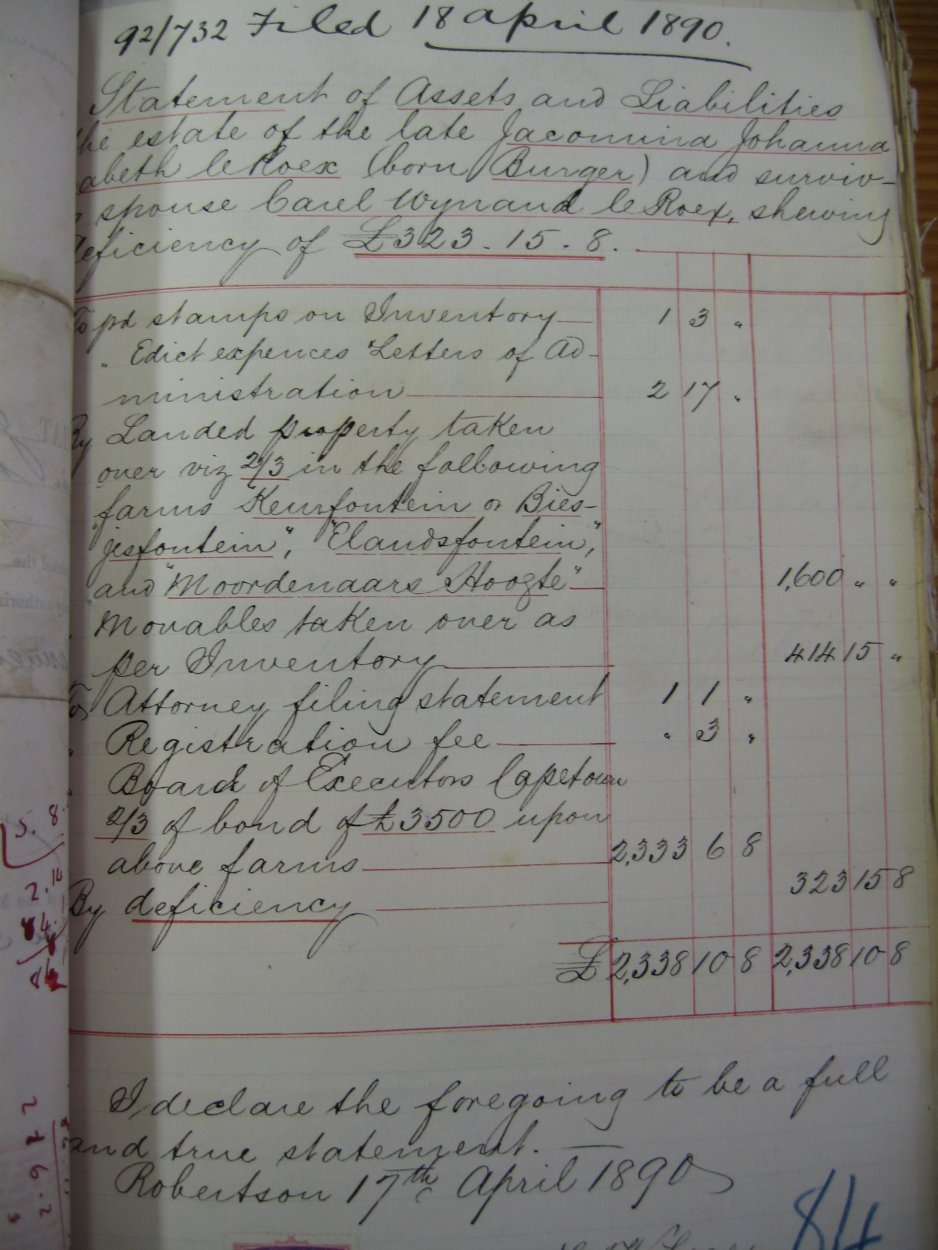 92/732 Filed 18 April 1890.
Statement of Assets and Liabilities
the estate of the late Jacomina Johanna
abeth le Roex (born Burger) and surviv-
spouse Carel Wynand le Roex, shewing
deficiency of £323.15.8.
To pd stamps on Inventory 1 3 "
" Edict expences Letters of Ad-
ministration 2 17 "
By Landed property taken
over viz 2/3 in the following
farms "Keurfontein or Bies-
jesfontein", "Elandsfontein",
and "Moordenaars Hoogte" 1,600 " "
" Movables taken over as
per Inventory 414 15 "
To Attorney filing statement 1 1 "
" Registration fee " 3 "
" Board of Executors Capetown
2/3 of bond of £3500 upon
above farms 2,333 6 8
By deficiency 323 15 8
£ 2,338 10 8 2,338 10 8
I declare the foregoing to be a full
and true statement.
Robertson 17th April 1890
84